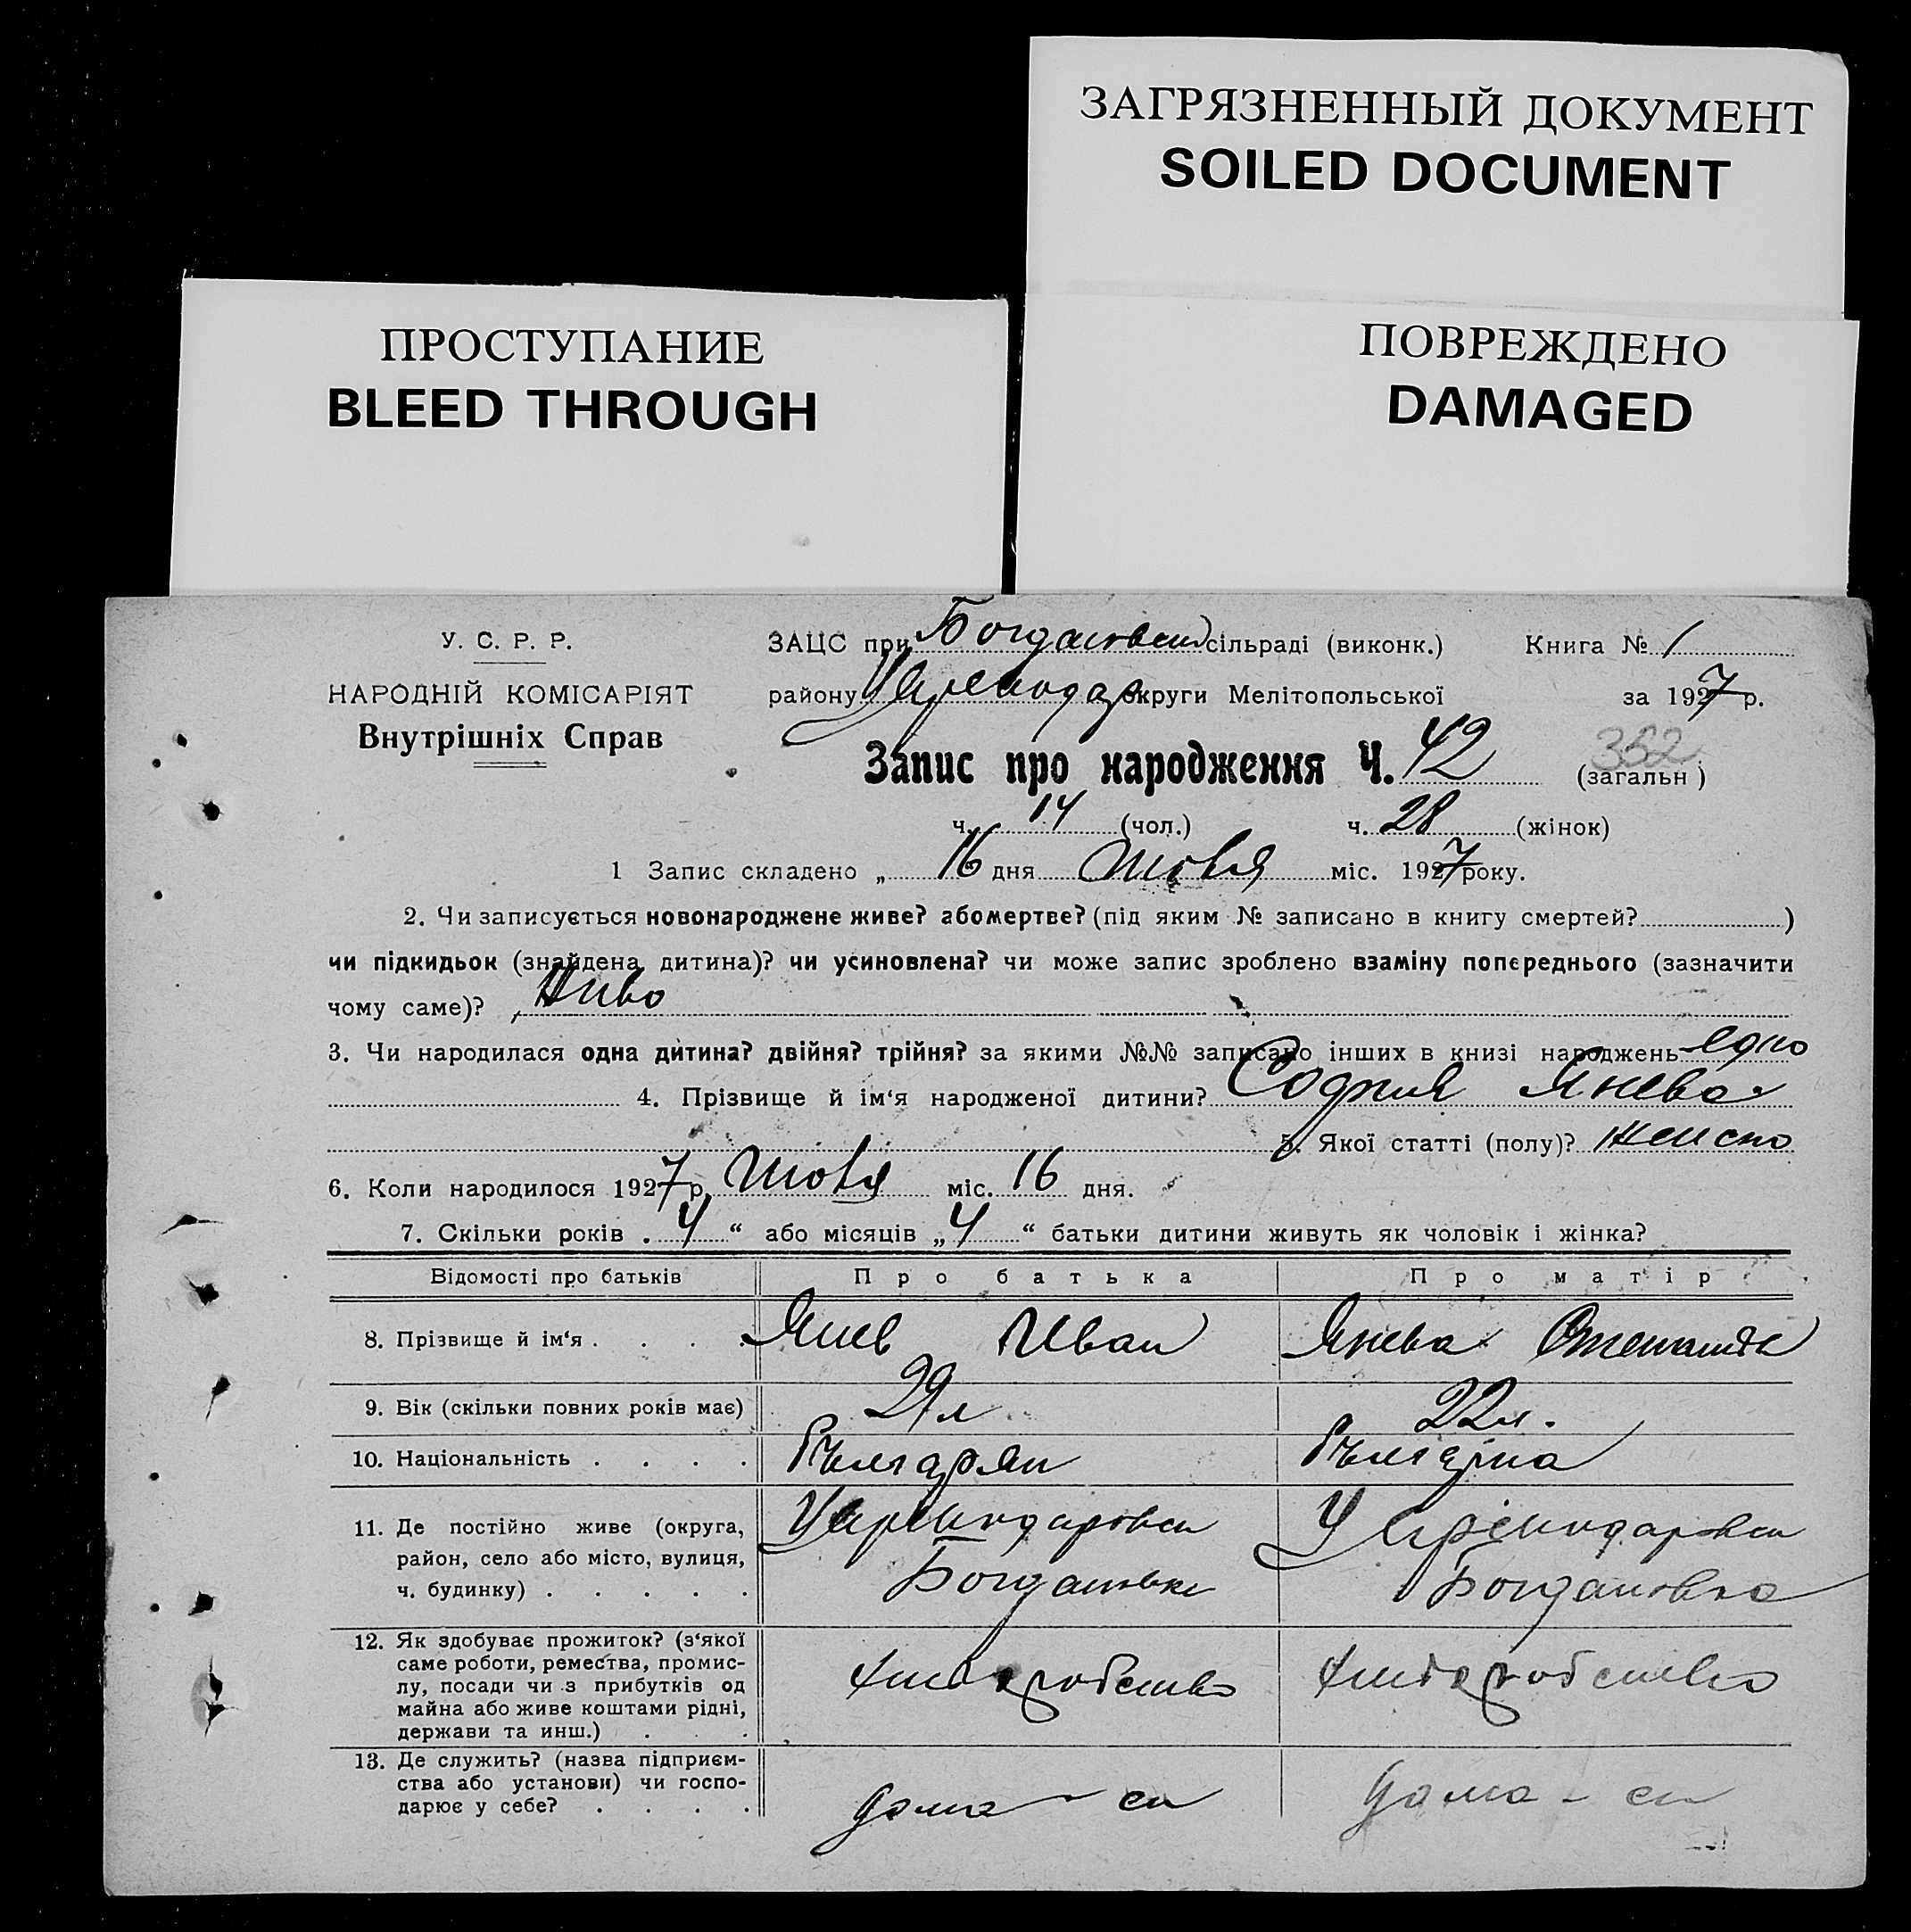 ЗАГРЯЗНЕННЫЙ ДОКУМЕНТ
SOILED DOCUMENT
ПРОСТУПАНИЕ
BLEED THROUGH
ПОВРЕЖДЕНО
DAMAGED
У. С. Р. Р.
НАРОДНІЙ КОМІСАРІЯТ
Внутрішніх Справ
ЗАЦС при Богдановск сільраді (виконк.) Книга № 1
району округи Мелітопольської за 1927 р.
Запис про народження Ч. 42 352 (загальн)
ч. 14 (чол.) ч. 28 (жінок)
1 Запис складено „ 16 дня міс. 1927 року.
2. Чи записується новонароджене живе? або мертве? (під яким № записано в книгу смертей? )
чи підкидьок (знайдена дитина)? чи усиновлена? чи може запис зроблено взаміну попереднього (зазначити
чому саме)? Живо
3. Чи народилася одна дитина? двійня? трійня? за якими №№ записано інших в книзі народжень едно
4. Прізвище й ім‘я народженої дитини? София Янева
5. Якої статті (полу)? женско
6. Коли народилося 1927 р. міс. 16 дня.
7. Скільки років „ 4 “ або місяців „ 4 “ батьки дитини живуть як чоловік і жінка?
Відомості про батьків Про батька Про матір
8. Прізвище й ім‘я . . . . Янев Иван Янева
9. Вік (скільки повних років має) 29 л 22 л.
10. Національність . . . . Българян Българка
11. Де постійно живе (округа,
район, село або місто, вулиця,
ч. будинку) . . . . . Богдановка Богдановка
12. Як здобуває прожиток? (з‘якої
саме роботи, ремества, промис-
лу, посади чи з прибутків од
майна або живе коштами рідні,
держави та инш.) . . .
13. Де служить? (назва підприєм-
ства або установи) чи госпо-
дарює у себе? . . . . дома - си дома - си